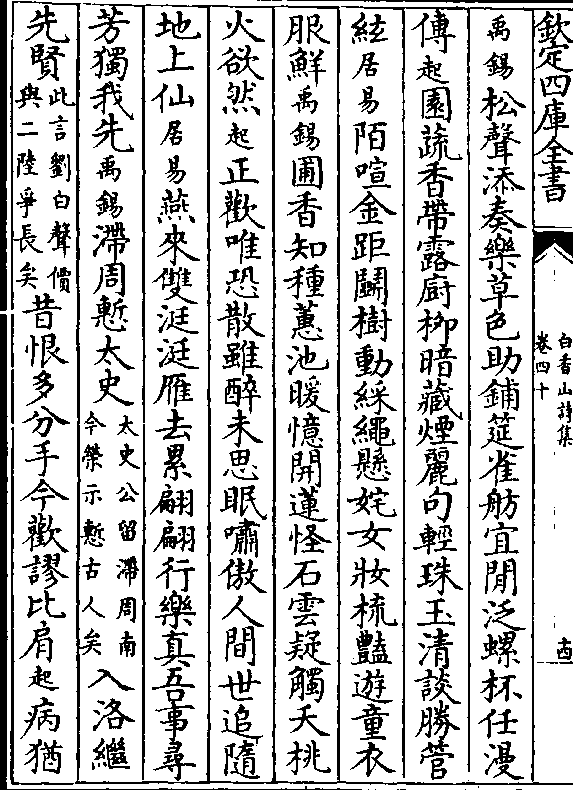 欽定四庫全書
白香山詩集
卷四十
十四
禹錫松聲添奏樂草色助鋪筵雀舫宜閒泛螺杯任漫
傳起園蔬香帶露廚柳暗藏煙麗句輕珠玉清談勝管
絃居易陌喧金距鬬樹動綵繩懸姹女妝梳豔遊童衣
服鮮禹錫圃香知種蕙池暖憶開蓮怪石雲疑觸夭桃
火欲然起正歡唯恐散雖醉未思眠嘯傲人間世追隨
地上仙居易燕來雙涎涎雁去累翩翩行樂真吾事尋
芳獨我先禹錫滯周慙太史太史公留滯周南今榮示慙古人矣入洛繼
先賢此言劉白聲價與二陸爭長矣昔恨多分手今歡謬比肩起病猶